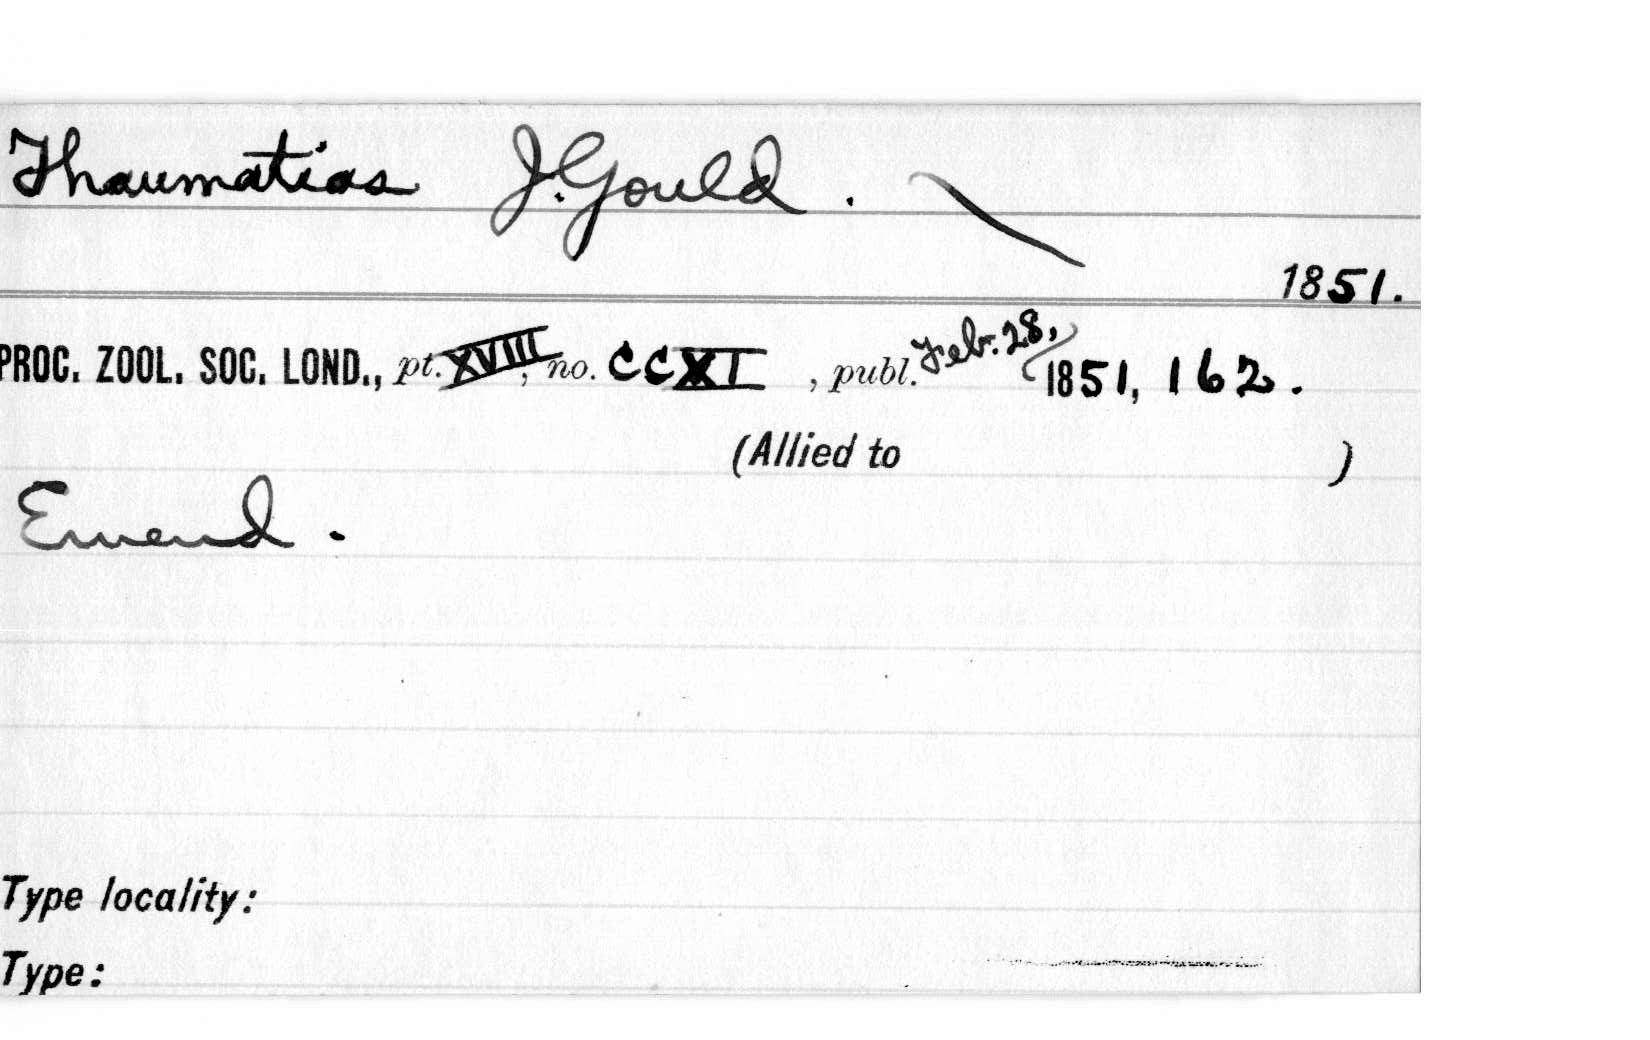 Thaumatias J. Gould.
1851.
PROC. ZOOL. SOC. LOND., pt. XVIII, no. CCXI, publ. Feb. 28, 1851, 162.
(Allied to )
Emend.
Type locality:
Type: